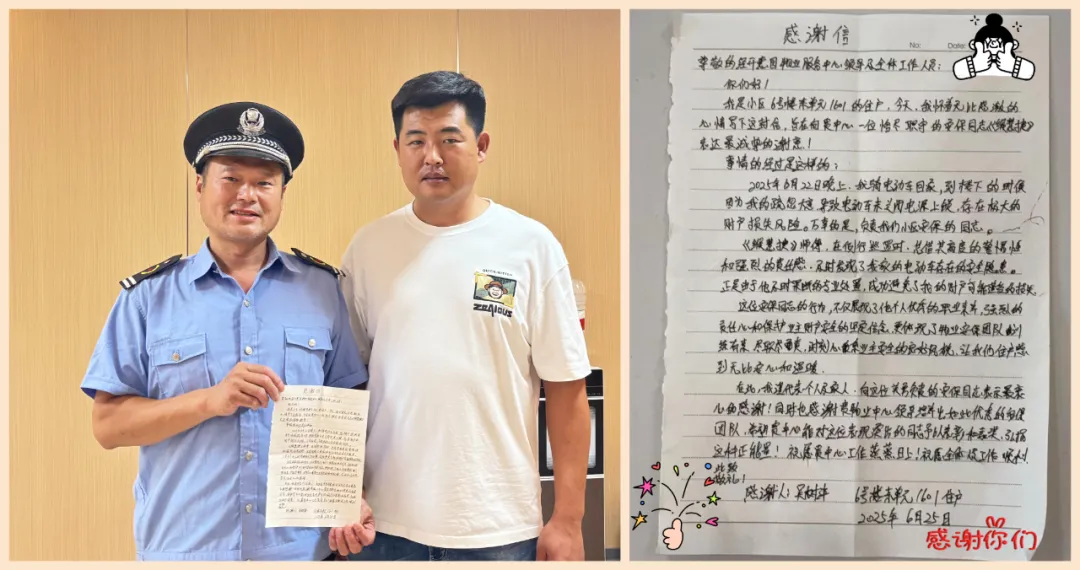 ZEALOUS
感谢信
No:
Date:
尊敬的经开花园物业服务中心领导及全体工作人员：
你们好！
我是小区6号楼东单元1601的住户，今天，我怀着无比感激的
心情写下这封信，旨在向贵中心一位恪尽职守的安保同志
表达最诚挚的谢意！
事情的经过是这样的：
2025年6月22日晚上，我骑电动车回家，到楼下的时候
因为我的疏忽大意，导致电动车未关闭电源上锁，存在极大的
财产损失风险。万幸的是，负责我们小区安保的同志。
师傅，在他们巡逻时，凭借其高度的警惕性
和强烈的责任感，及时发现了我的电动车存在的安全隐患。
正是由于他及时果断的专业处置，成功避免了我的财产可能遭受的损失
这位安保同志的行为，不仅展现了他个人优秀的职业素养，强烈的
责任心和保护业主财产安全的坚定信念，更体现了物业安保团队训
练有素、尽职尽责，时刻心系业主安全的良好风貌，让我们住户感
到无比安心和温暖。
在此，我谨代表个人及家人，向这位负责的安保同志表示最衷
心的感谢！同时也感谢贵物业中心领导培养出如此优秀的安保
团队，希望贵中心能对这位表现突出的同志予以表彰和表扬，弘扬
这种正能量！祝愿贵中心工作蒸蒸日上！祝愿全体员工工作顺利
此致
敬礼！
感谢人：
6号楼东单元1601住户
2025年6月25日
感谢你们